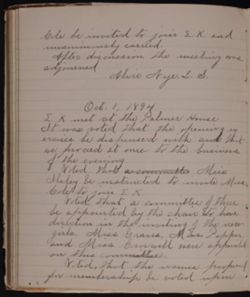 Cole be invited to join E. K. and
unanimously carried.
After discussion the meeting was
adjourned
Nye L. S.
Oct. 1, 1894
E. K. met at the Palmer House
It was voted that the opening
exercise be dispensed with and that
we proceed at once to the business
of the evening
Voted that a committee Miss
be instructed to invite Miss
Cole to join E. K.
Voted that a committee of three
be appointed by the chair to have
direction in the inviting of the new
girls. Miss Graves, Miss Pepper,
and Miss were appointed
on this committee.
Voted, that the names proposed
for membership be voted upon